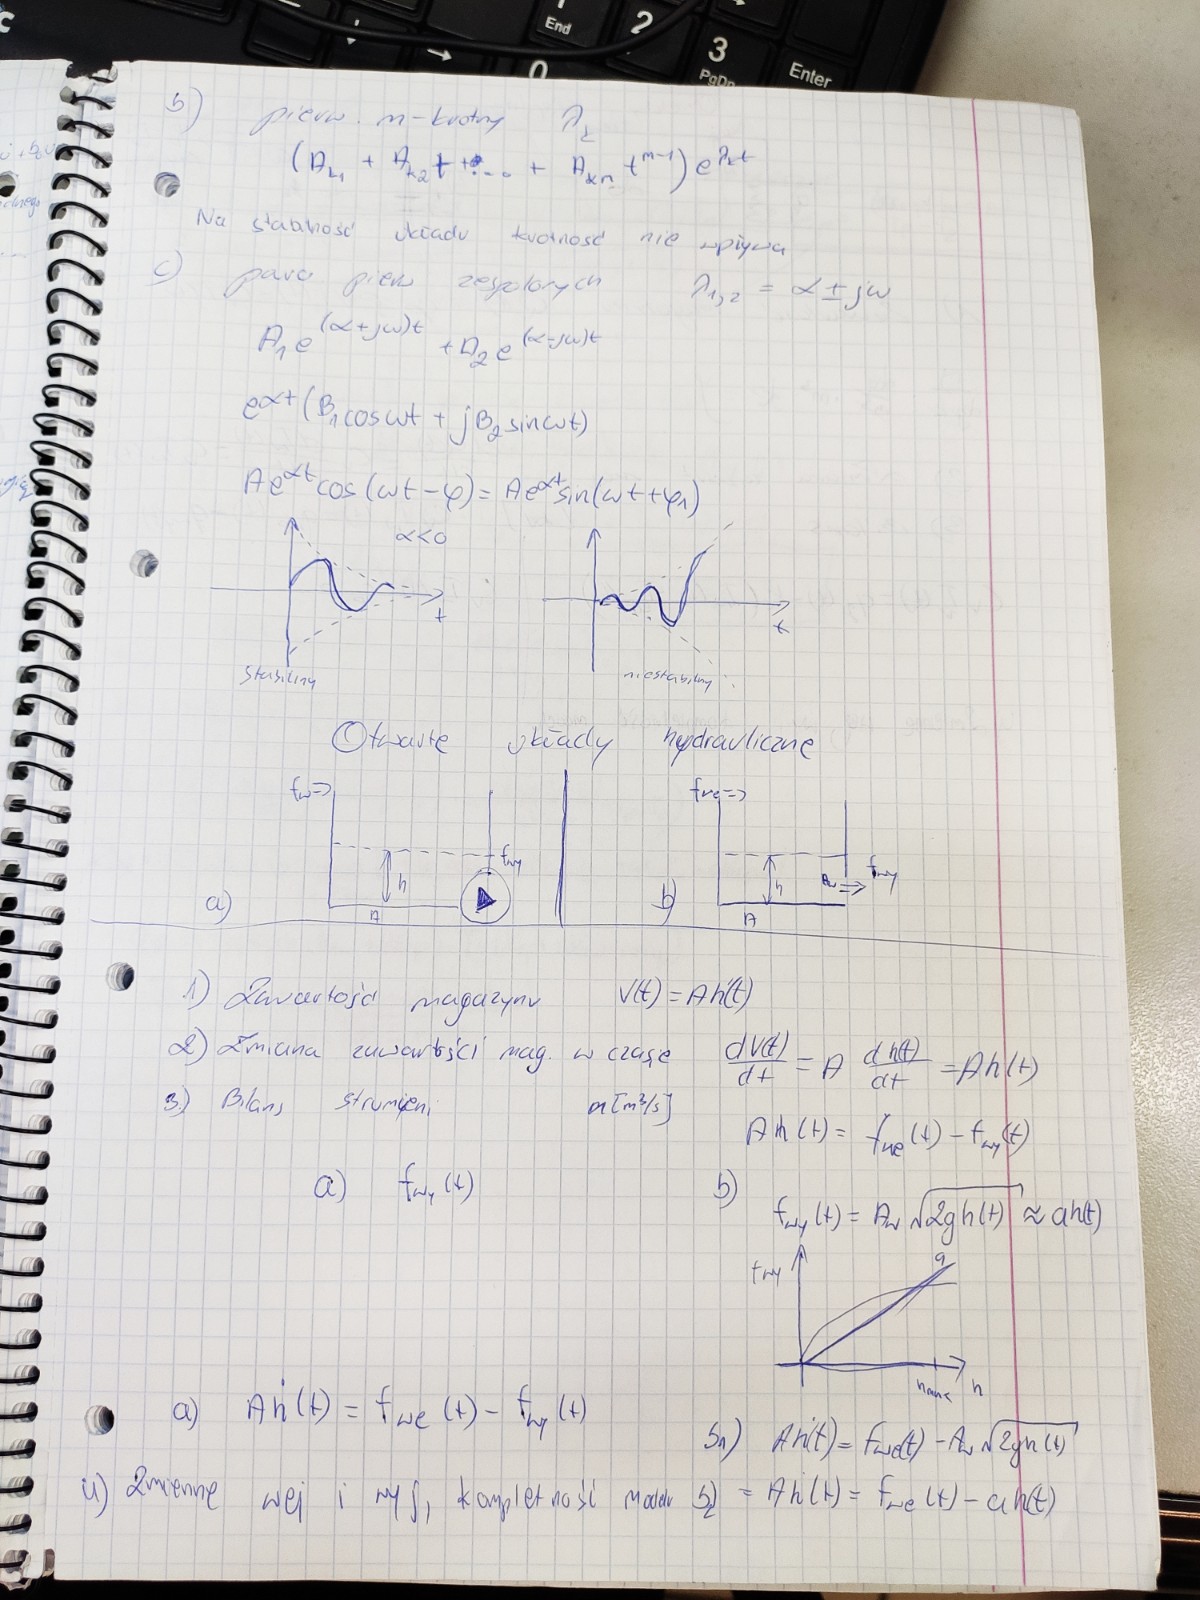 End
2
3
PgDn
0
Enter
b) pierw. m-krotny λ₂
(A_k1 + A_k2 t + ... + A_km t^(m-1)) e^(λ_k t)
Na stabilność układu krotność nie wpływa
c) para pierw zespolonych λ₁,₂ = α ± jω
A₁e^((α+jω)t) + A₂e^((α-jω)t)
e^(αt) (B₁cosωt + jB₂sinωt)
Ae^(αt) cos(ωt-φ) = Ae^(αt) sin(ωt+φ₁)
α<<0
t
t
stabilny
niestabilny
Otwarte układy hydrauliczne
f_w=>
f_wy
h
A
a)
f_we=>
f_wy
h
A_w =>
A
b)
1) Zawartość magazynu V(t) = Ah(t)
2) Zmiana zawartości mag. w czasie dV(t)/dt = A dh(t)/dt = Aḣ(t)
3) Bilans strumieni [m³/s]
Aḣ(t) = f_we(t) - f_wy(t)
a) f_wy(t)
b)
f_wy(t) = A_w √(2gh(t)) ≈ ah(t)
f_wy
a
h_max
h
a) Aḣ(t) = f_we(t) - f_wy(t)
b₁) Aḣ(t) = f_we(t) - A_w √(2gh(t))
4) Zmienne wej i wyj, kompletność modelu
b₂) = Aḣ(t) = f_we(t) - ah(t)